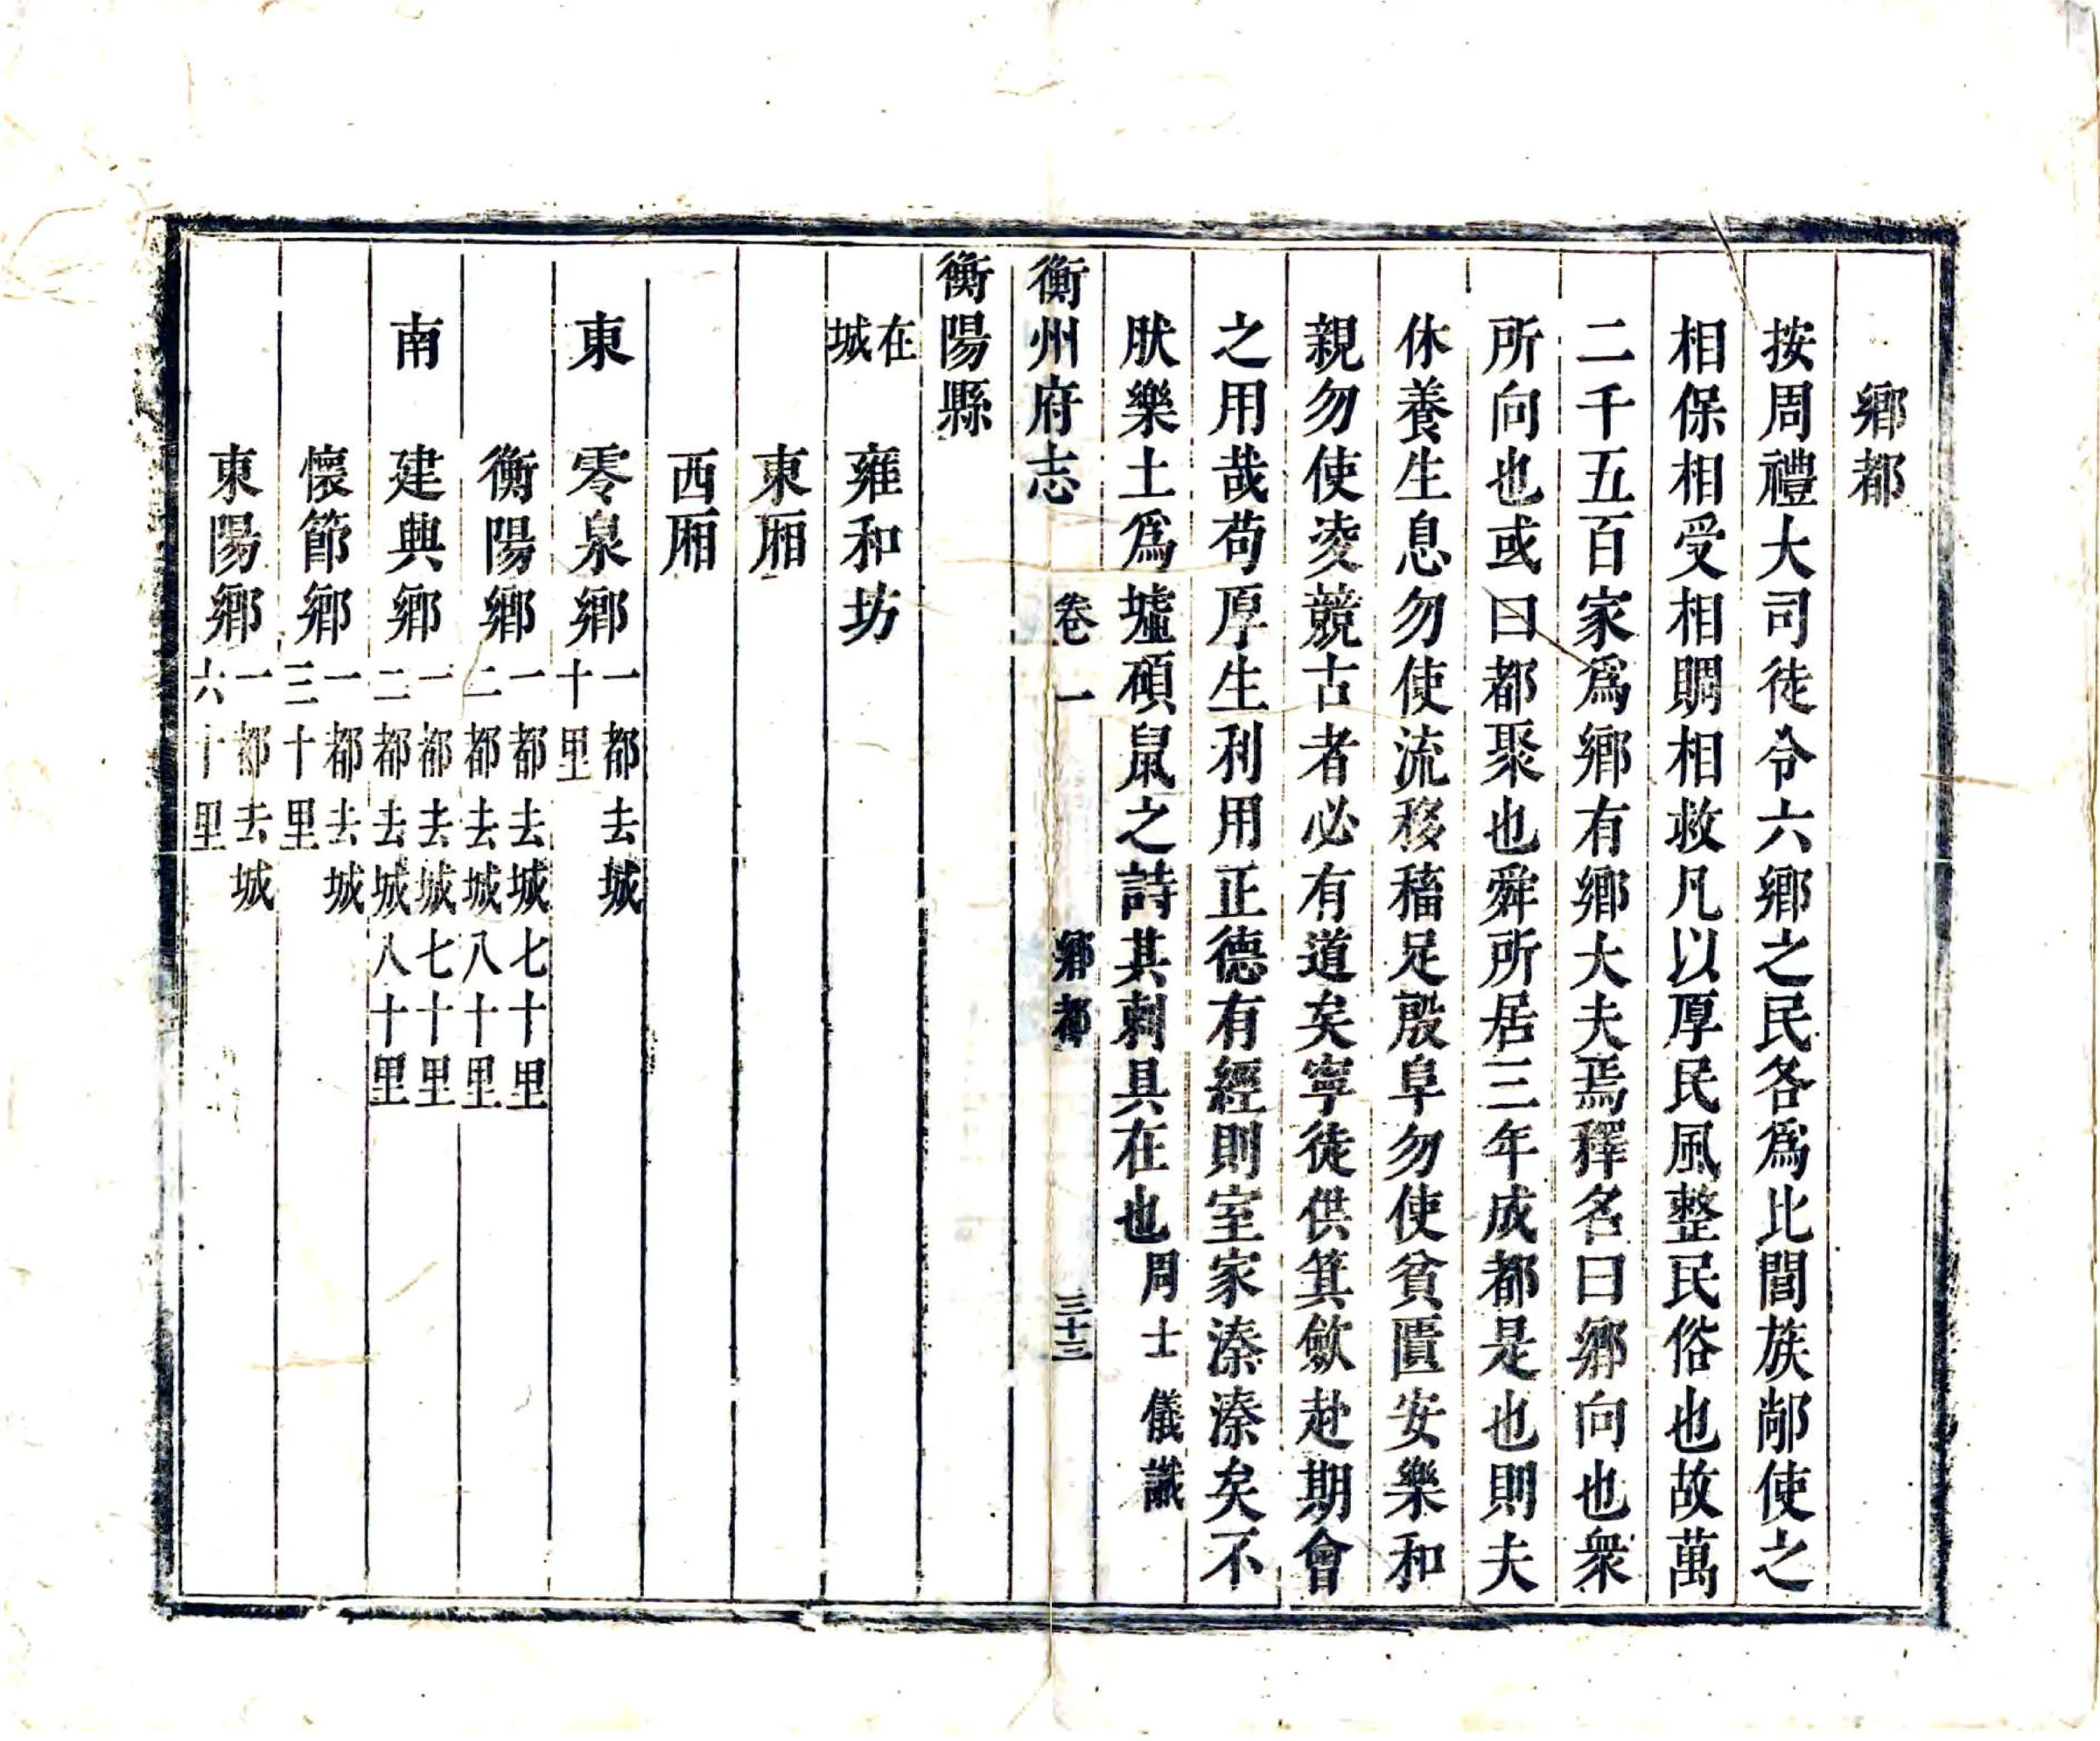 鄉都
按周禮大司徒令六鄉之民各爲比閭族鄙使之
相保相受相賙相救凡以厚民風整民俗也故萬
二千五百家爲鄉有鄉大夫焉釋名曰鄉向也衆
所向也或曰都聚也舜所居三年成都是也則夫
休養生息勿使流移稸足殷阜勿使貧匱安樂和
親勿使凌競古者必有道矣寧徒供箕歛赴期會
之用哉苟厚生利用正德有經則室家溱溱矣不
肰樂土爲墟碩鼠之詩其刺具在也周士儀識
衡州府志 卷一 鄉都 三十三
衡陽縣
在城 雍和坊
東廂
西廂
東 零泉鄉 一都去城十里
衡陽鄉 一都去城七十里二都去城八十里
南 建興鄉 一都去城七十里二都去城八十里
懷節鄉 一都去城三十里
東陽鄉 一都去城六十里